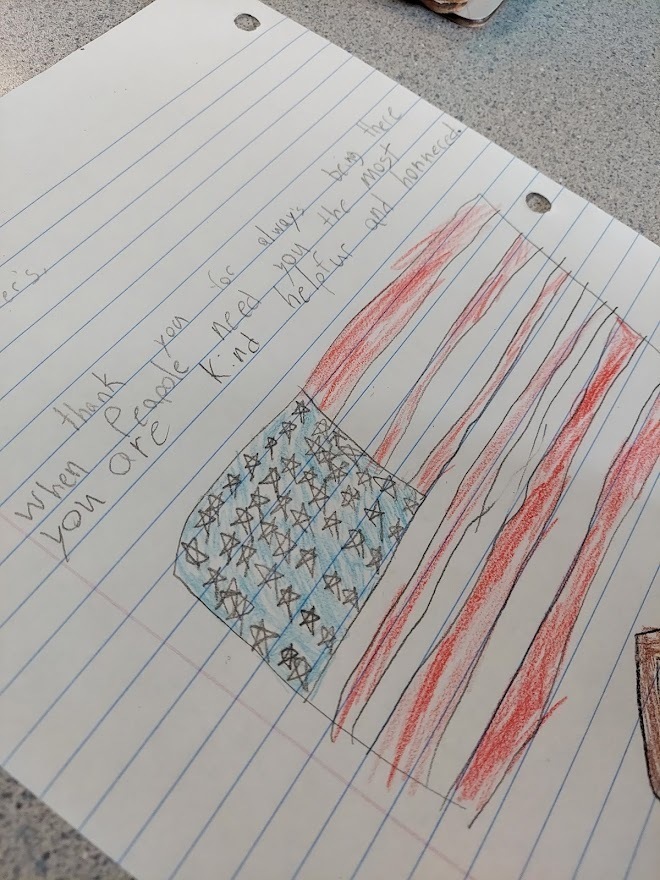 er's,
thank you for always being there
when Peaple need you the most
you are kind helpfur and honnered.